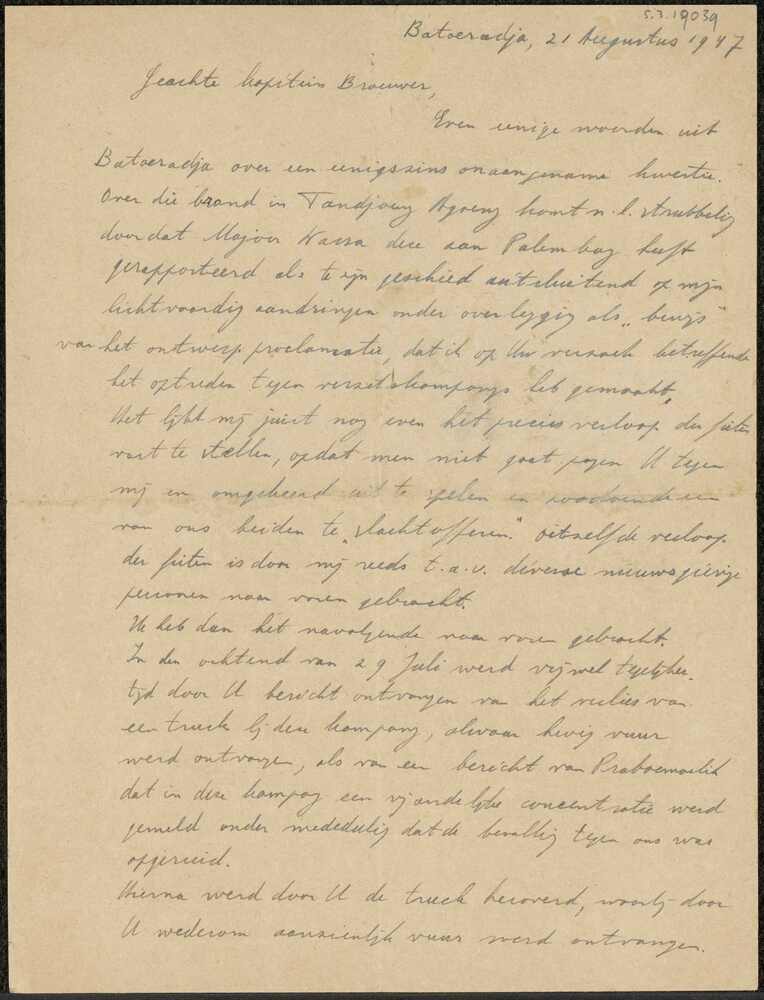 5.3.19039
Batoeradja, 21 Augustus 1947
Geachte Kapitein Brouwer,
Even eenige woorden uit
Batoeradja over een eenigszins onaangename kwestie.
Over die brand in Tandjong Agoeng komt n.l. strubbeling
doordat Majoor Warsa deze aan Palembang heeft
gerapporteerd als te zijn geschied uitsluitend op mijn
lichtvaardig aandringen onder overlegging als "bewijs"
van het ontwerp proclamatie, dat ik op Uw verzoek betreffende
het optreden tegen verzetskampongs heb gemaakt.
Het lijkt mij juist nog even het precies verloop der feiten
vast te stellen, opdat men niet gaat pogen U tegen
mij en omgekeerd uit te spelen en zoodoende een
van ons beiden te "slachtofferen". Ditzelfde verloop
der feiten is door mij reeds t.a.v. diverse nieuwsgierige
personen naar voren gebracht.
Ik heb dan het navolgende naar voren gebracht.
In den ochtend van 29 Juli werd vrijwel tegelijker-
tijd door U bericht ontvangen van het verlies van
een truck bij deze kampong, alwaar hevig vuur
werd ontvangen, als van een bericht van Praboemoelih
dat in deze kampong een vijandelijke concentratie werd
gemeld onder mededeeling dat de bevolking tegen ons was
opgeruid.
Hierna werd door U de truck heroverd, waarbij door
U wederom aanzienlijk vuur werd ontvangen.